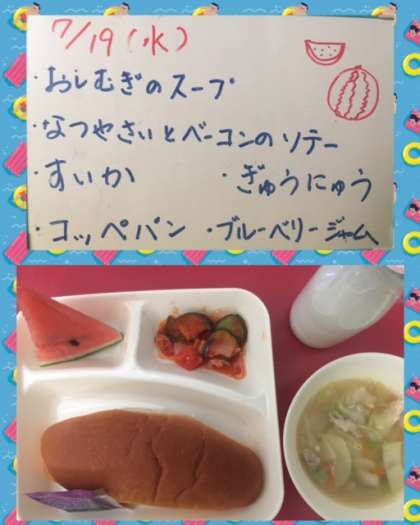 7/19(水)
・おしむぎのスープ
・なつやさいとベーコンのソテー
・すいか ・ぎゅうにゅう
・コッペパン ・ブルーベリージャム